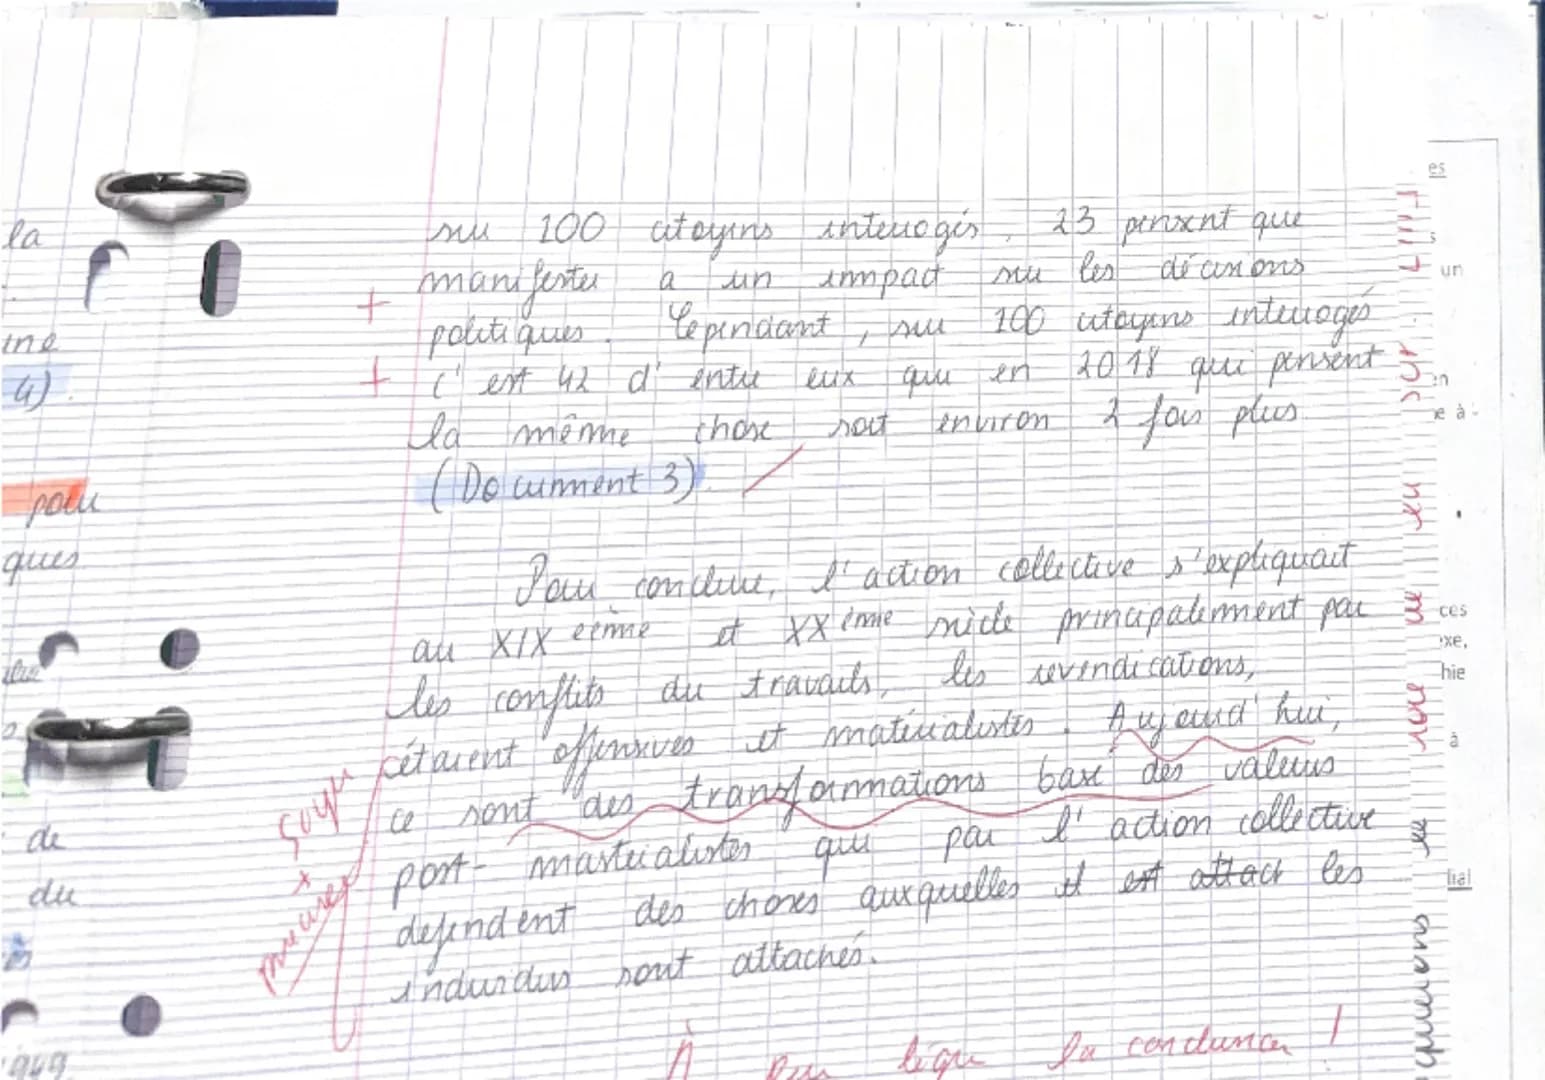 sur 100 citoyens interrogés, 23 pensent que
manifester a un impact sur les décisions
politiques. Cependant, sur 100 citoyens interrogés
c'est 42 d'entre eux que en 2018 qui pensent
la même chose soit environ 2 fois plus
(Document 3).
Pour conclure, l'action collective s'expliquait
au XIX eème et XX ème siècle principalement par
les conflits du travails, les revendications,
cétaient offensives et matérialistes. Aujourd'hui,
ce sont des transformations basé des valeurs
post-mastérialistes qui par l'action collective
defendent des choses auxquelles il est attach les
individus sont attachés.
À peu légère la conclusion !
soyez
+
précises
la
ine
4)
pour
ques
de
du
1949
es
s
un
en
e à
ces
xe,
hie
à